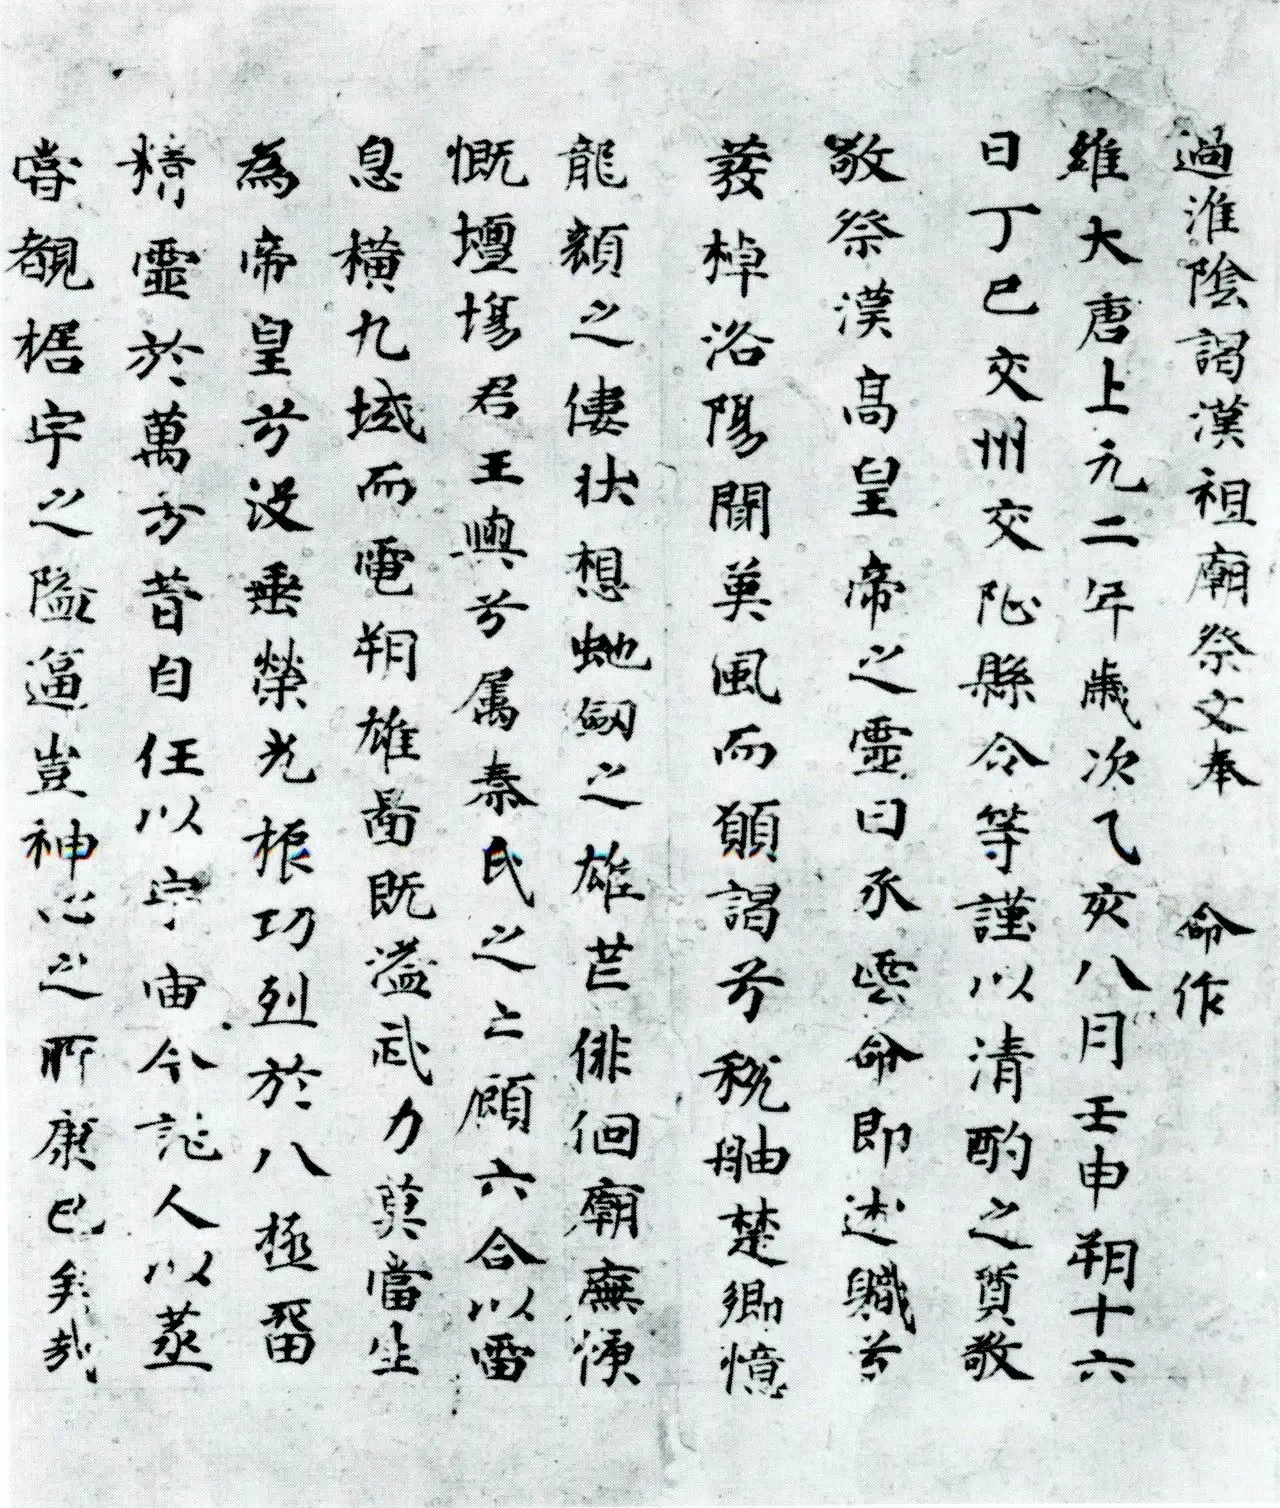 過淮陰謁漢祖廟祭文奉 命作
維大唐上元二年歲次乙亥八月壬申朔十六
日丁巳交州交阯縣令等謹以清酌之質敬
敬祭漢高皇帝之靈曰承雲命即述職兮
發棹洛陽聞英風而願謁兮稅舳楚鄉憶
龍顏之偉狀想虵劔之雄芒俳佪廟廡悵
慨壇場君王輿兮屬秦氏之亡顧六合以雷
息橫九域而電朔雄啚既溢武力莫當生
為帝皇兮沒垂榮光振功烈於八極留
精靈於萬方昔自任以宇宙今託人以蒸
嘗覩椐宇之隘逼豈神心之所康已矣哉